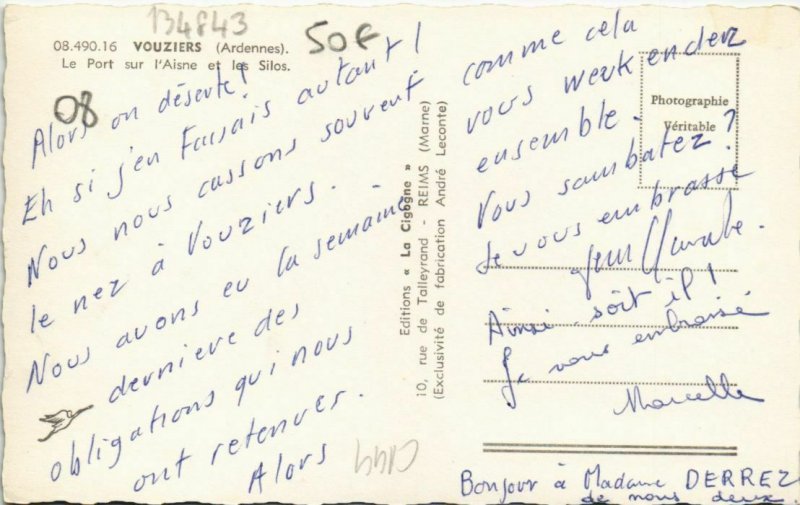 134843
08.490.16 VOUZIERS (Ardennes).
Le Port sur l'Aisne et les Silos.
50F
08
Alors on déserte!
Eh si j'en faisais autant!
Nous nous cassons souvent
le nez à Vouziers.
Nous avons eu la semaine
derniere des
obligations qui nous
ont retenues.
Alors
Editions « La Cigogne »
10, rue de Talleyrand - REIMS (Marne)
(Exclusivité de fabrication André Leconte)
Photographie
Véritable
comme cela
vous week endez
ensemble.
Vous sambatez?
Je vous embrasse
Ainsi soit il!
Je vous embrasse
Marcelle
Bonjour à Madame DERREZ
de nous deux.